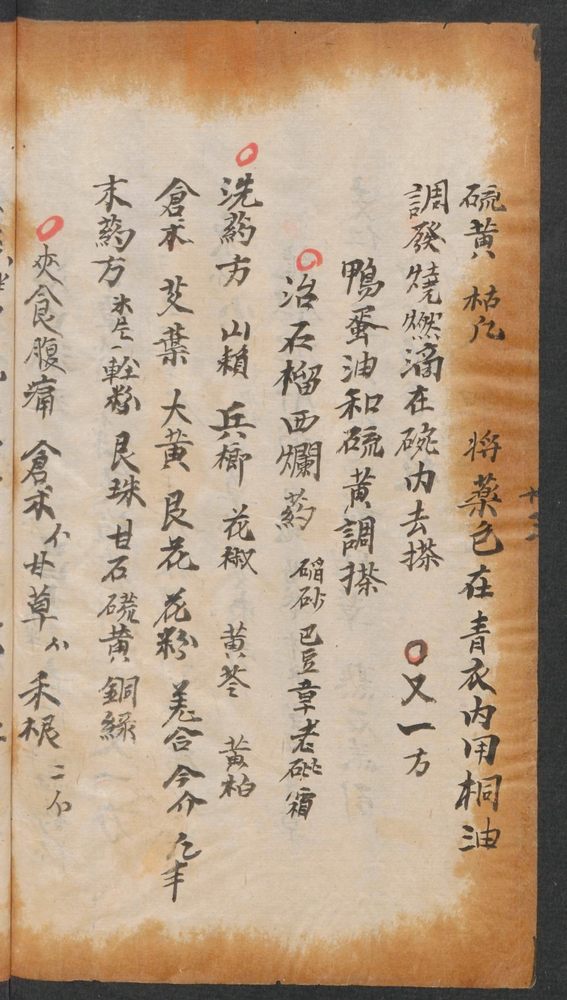 硫黄 枯凡 将薬包在青衣内用桐油
調發燒燃滴在碗内去搽 ○又一方
鴨蛋油和硫黄調搽
○治石榴西爛葯 硇砂 巴豆 章老 砒霜
○洗葯方 山賴 兵榔 花椒 黄芩 黄柏
倉术 艾葉 大黄 艮花 花粉 羌合
末葯方 氷片 輕粉 艮珠 甘石 硫黄 銅緑
○夾食腹痛 倉术 甘草 禾根